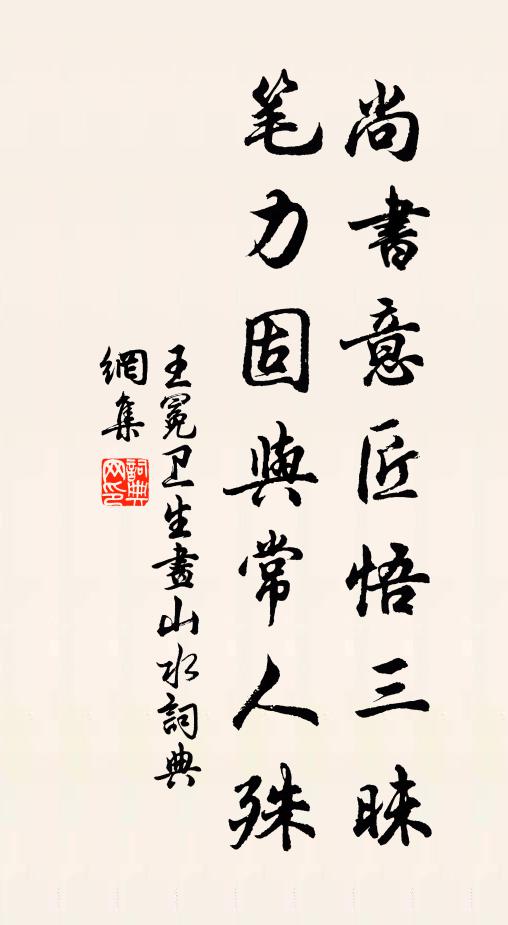 尚書意匠悟三昧
笔力固與常人殊
王冕卫生畫山水詞典
網集
詞典网印